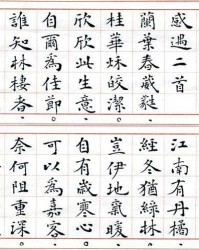 感遇二首
蘭葉春葳蕤。
桂華秋皎潔。
欣欣此生意。
自爾為佳節。
誰知林棲者。
江南有丹橘。
經冬猶綠林。
豈伊地氣暖。
自有歲寒心。
可以為嘉客。
奈何阻重深。